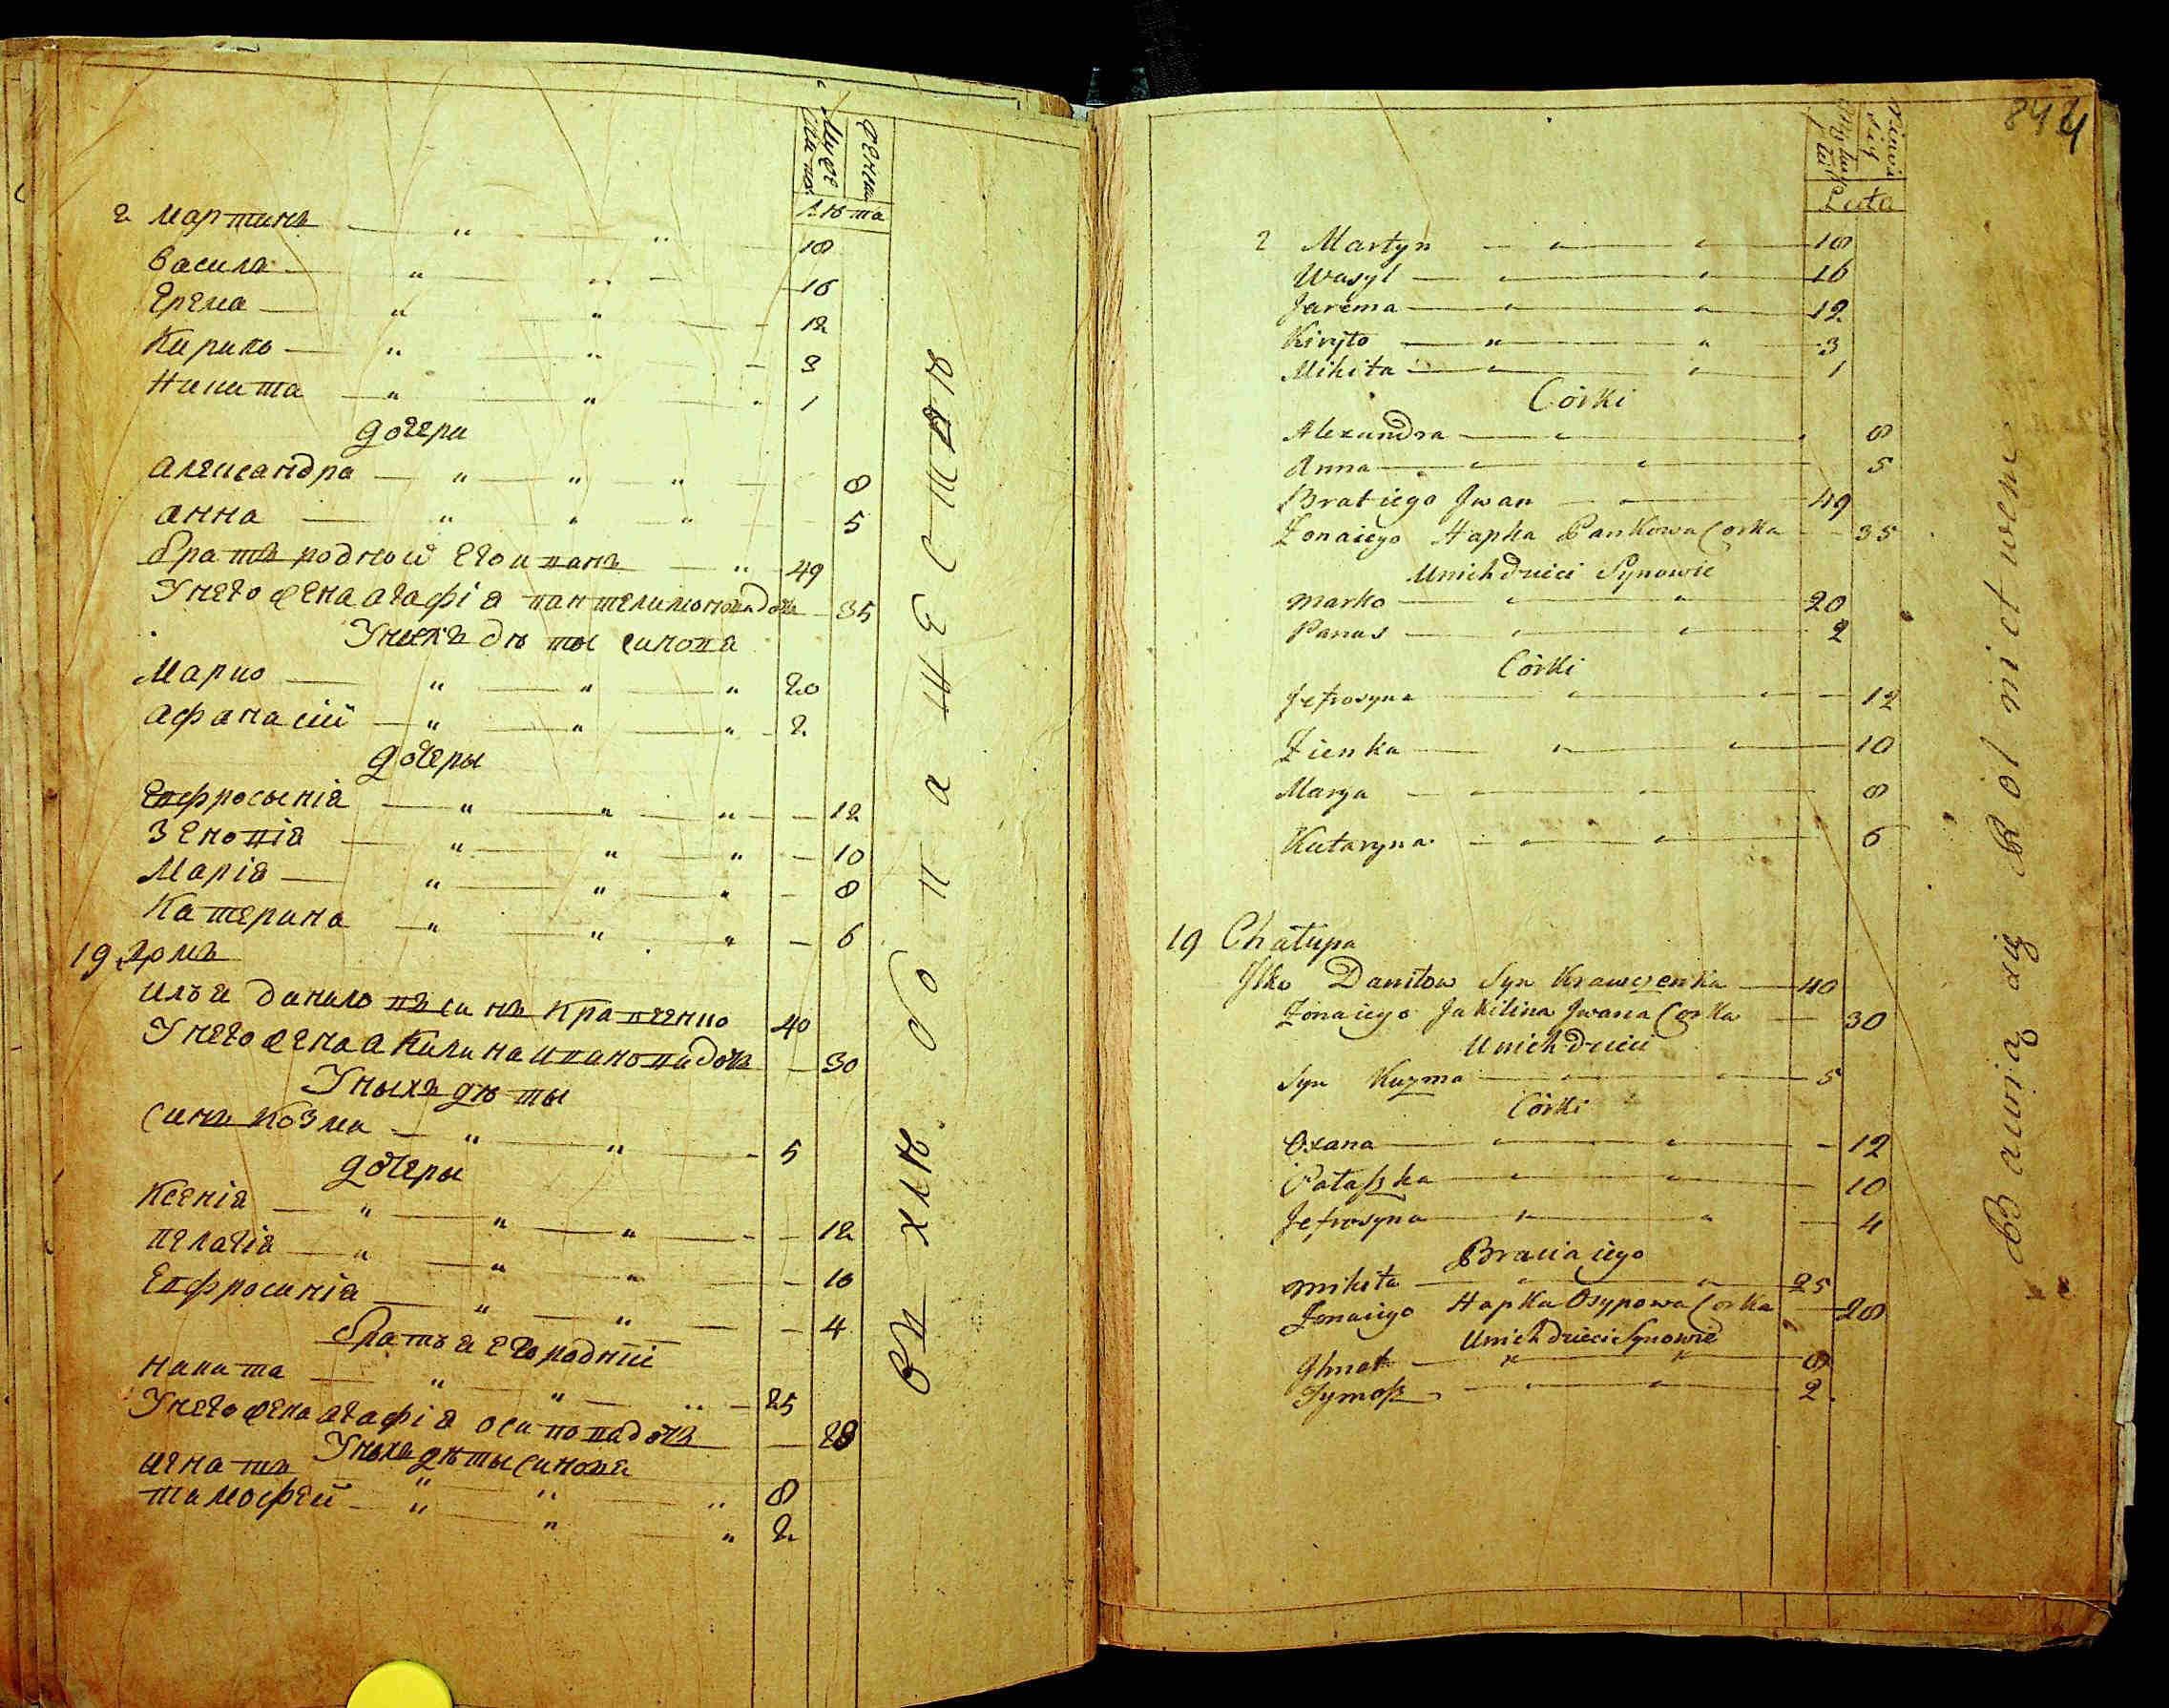 Мужеска пол
женска
лѣта
2 Мартинъ — " — " — 18
Василь — " — " — 16
Ерема — " — " — 12
Кирило — " — " — 3
Никита — " — " — 1
дочери
Александра — " — " — " — 8
Анна — " — " — " — 5
братъ родной его иванъ — " — 49
Унего жена агафія пантелимонова дочь — 35
Унихъ дѣты синова
Марко — " — " — " 20
Афанасий — " — " — " — 2
дочеры
Евфросынія — " — " — " — 12
Зеновія — " — " — " — 10
Марія — " — " — " — 8
Катерина — " — " — " — 6
19 домъ
Илья данило въ синъ кравченко 40
Унего жена акилина иванова дочь — 30
Уныхъ дѣты
Синъ козма — " — " — 5
дочеры
Ксенія — " — " — " — 12
пелагія — " — " — " — 10
Евфросинія — " — " — 4
братья его родніе
никита — " — " — " — 25
Унего жена агафія осипова дочь — 28
Уныхъ дѣты синова
игнатъ — " — " — " 8
тимофей — " — " — " 2
Въ хлѣбопашествѣ
844
Lata
2 Martyn — " — " — 18
Wasyl — " — " — 16
Jarema — " — " — 12
Kiryło — " — " — 3
Mikita — " — " — 1
Córki
Alexandra — " — 8
Anna — " — " — 5
Brat iego Jwan — " — 49
Żona iego Hapka Pankowa Corka — 35
U nich dzieci Synowie
Marko — " — " — 20
Panas — " — " — 2
Córki
Jefrosyna — " — " — 12
Zienka — " — " — 10
Marya — " — " — 8
Kataryna — " — " — 6
19 Chałupa
Jlko Daniłow Syn Krawczenko — 40
Żona iego Jakilina Jwana Corka — 30
U nich dzieci
Syn Kuzma — " — " — 5
Córki
Oxana — " — " — 12
Pałaszka — " — " — 10
Jefrosyna — " — " — 4
Bracia iego
Mikita — " — " — 25
Żona iego Hapka Osypowa Corka — 28
U nich dzieci Synowie
Jhnat — " — " — 8
Tymosz — " — " — 2
Bawią się Rolnictwem